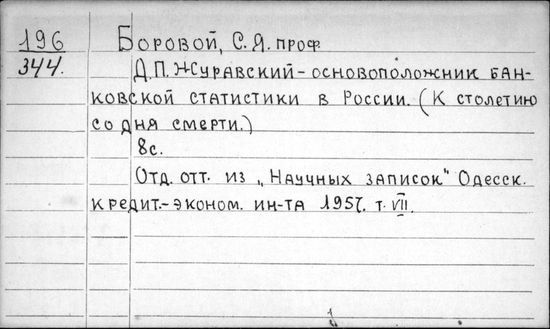 196 Боровой, С.Я. проф
344. Д.П. Журавский - основоположник бан-
ковской статистики в России. (К столетию
со дня смерти.)
8с.
Отд. отт. из „Научных записок" Одесск.
кредит.-эконом. ин-та 1957. т. VII.